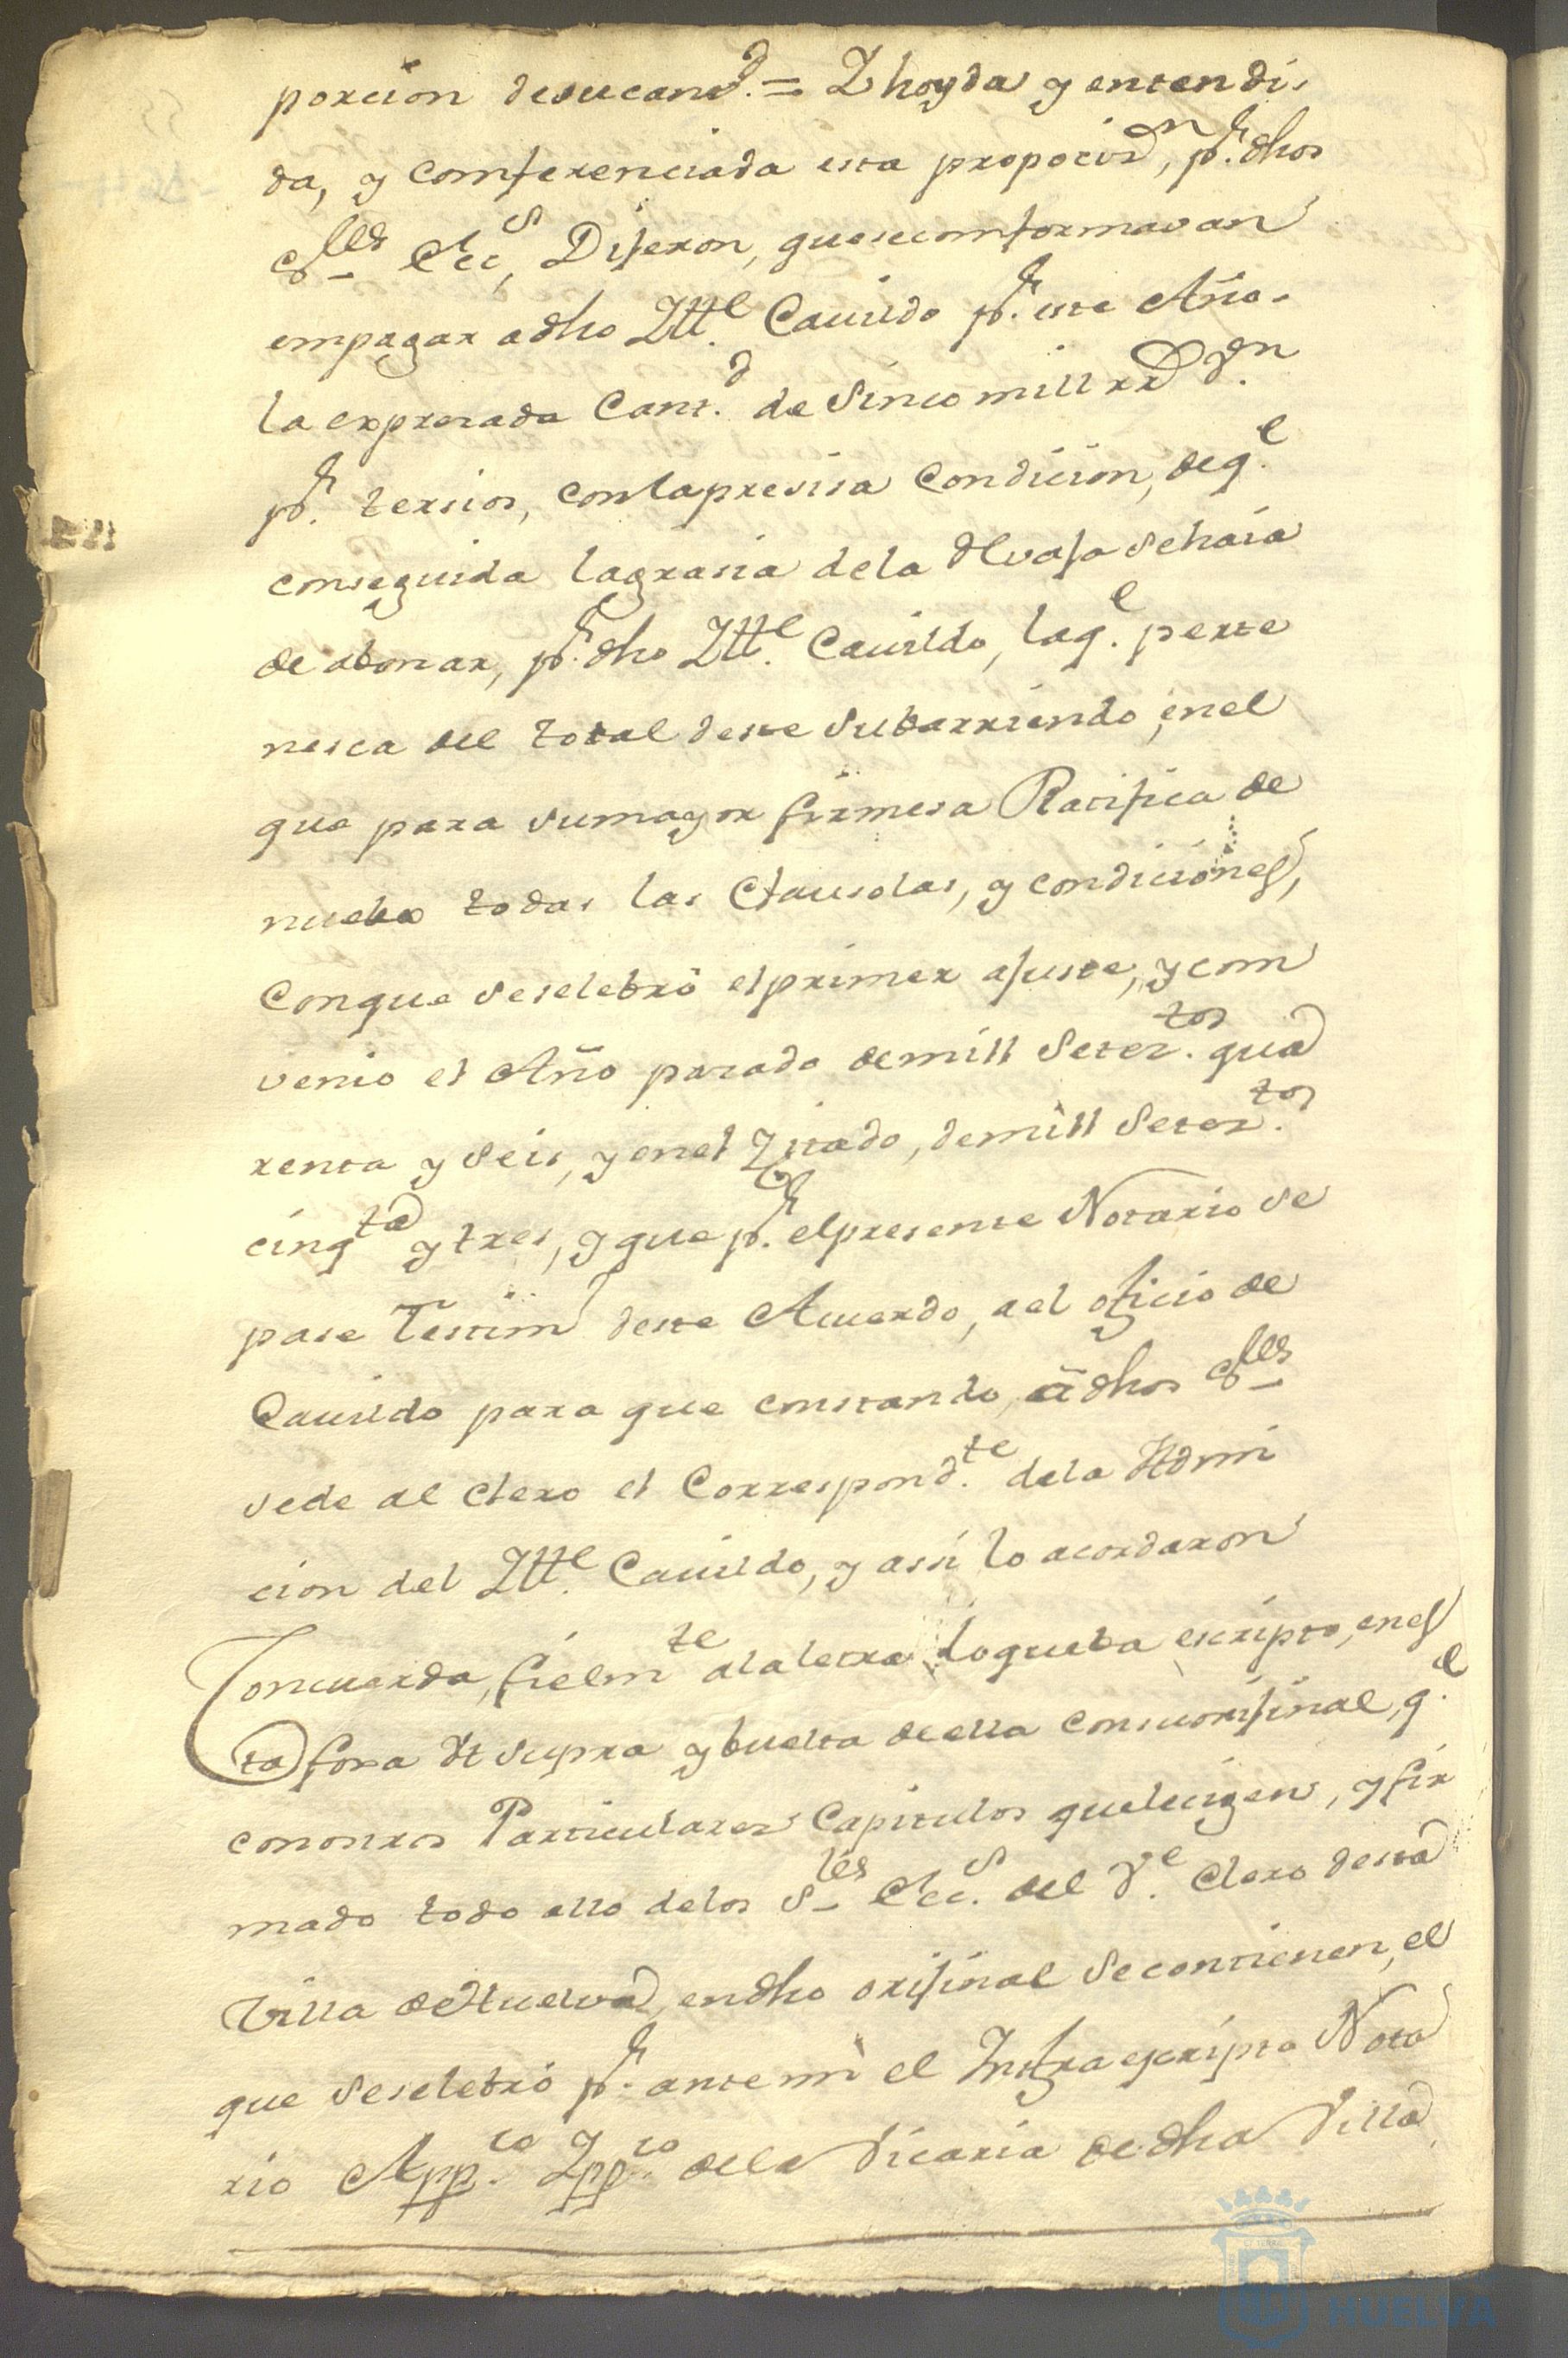 porcion desucantd. = Y hoyda y entendi-
da, y comferenciada esta propocion, pr. dhos
Sres Eccs, Dijeron, quesecomformavan
empagar adho Ytte. Cavildo pr. este Año-
la expresada Cantd. de Sinco mill rrs Vn
pr. tersios, conlapresisa Condicion, deqe
conseguida lagrasia dela Rvaja Sehaia
de abonar, pr. dho Ytte. Cavildo, laqe. perte
nesca del total deste Subarriendo, enel
que para sumayor firmesa Ratifica de
nuebo todas las Clausolas, y condiciones,
Conque Seselebró elprimer ajuste, y com
venio el Año pasado demill Setestos. qua
renta y Seis, y enel Zitado, demill Setestos.
cinqta y tres, y que pr. elpresente Notario se
pase Testimo deste Acuerdo, ael oficio de
Cavildo para que constando, â dhos Sres
sede al Clero el Correspondte. dela Admi
cion del Ytte. Cavildo, y assi lo acordaron
Concuerda, fielmte alaletra loqueba escripto, enes
ta foxa Vt supra y buelta deella consuorijinal, qe.
conotros Particulares Capitulos quelesigen, y fir
mado todo ello delos Sres Eccs. del Ve. Clero desta
Villa de Huelva, endho orijinal Secontienen, el
que Seselebró pr. antemi el Infraescripto Nota
rio Appco. y Ppco. dela Vicaria de dha Villa
HUELVA